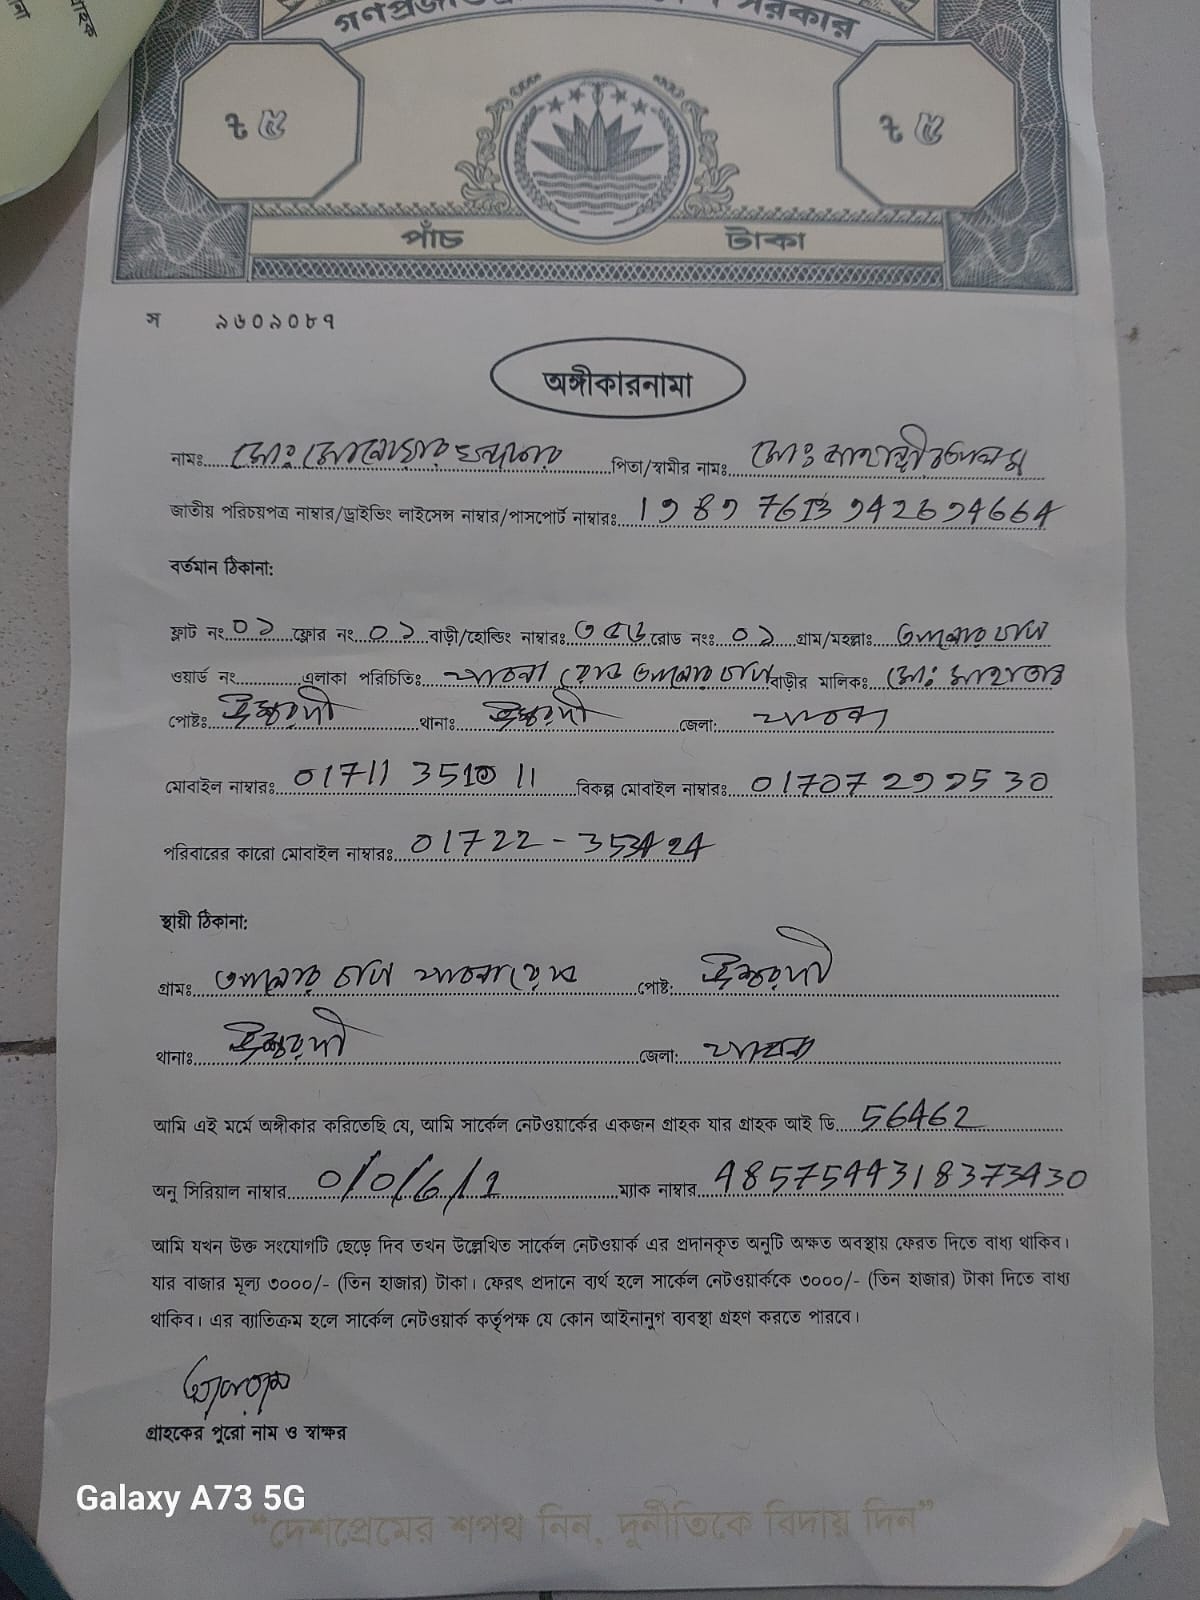 গণপ্রজাত সরকার
৳ ৫
৳ ৫
পাঁচ টাকা
স ৯৬০৯০৮৭
অঙ্গীকারনামা
নামঃ মোঃ পিতা/স্বামীর নামঃ মোঃ
জাতীয় পরিচয়পত্র নাম্বার/ড্রাইভিং লাইসেন্স নাম্বার/পাসপোর্ট নাম্বারঃ
বর্তমান ঠিকানা:
ফ্লাট নং ০১ ফ্লোর নং ০১ বাড়ী/হোল্ডিং নাম্বারঃ রোড নংঃ ০১ গ্রাম/মহল্লাঃ
ওয়ার্ড নং এলাকা পরিচিতিঃ বাড়ীর মালিকঃ মোঃ
পোষ্টঃ ঈশ্বরদী থানাঃ ঈশ্বরদী জেলা: পাবনা
মোবাইল নাম্বারঃ 01711 351011 বিকল্প মোবাইল নাম্বারঃ 01707 299530
পরিবারের কারো মোবাইল নাম্বারঃ 01722-353424
স্থায়ী ঠিকানা:
গ্রামঃ পোষ্ট: ঈশ্বরদী
থানাঃ ঈশ্বরদী জেলা: পাবনা
আমি এই মর্মে অঙ্গীকার করিতেছি যে, আমি সার্কেল নেটওয়ার্কের একজন গ্রাহক যার গ্রাহক আই ডি 56462
অনু সিরিয়াল নাম্বার 0/0/6/1 ম্যাক নাম্বার 4857544318373430
আমি যখন উক্ত সংযোগটি ছেড়ে দিব তখন উল্লেখিত সার্কেল নেটওয়ার্ক এর প্রদানকৃত অনুটি অক্ষত অবস্থায় ফেরত দিতে বাধ্য থাকিব।
যার বাজার মূল্য ৩০০০/- (তিন হাজার) টাকা। ফেরৎ প্রদানে ব্যর্থ হলে সার্কেল নেটওয়ার্ককে ৩০০০/- (তিন হাজার) টাকা দিতে বাধ্য
থাকিব। এর ব্যাতিক্রম হলে সার্কেল নেটওয়ার্ক কর্তৃপক্ষ যে কোন আইনানুগ ব্যবস্থা গ্রহণ করতে পারবে।
গ্রাহকের পুরো নাম ও স্বাক্ষর
Galaxy A73 5G
“দেশপ্রেমের শপথ নিন, দুর্নীতিকে বিদায় দিন”